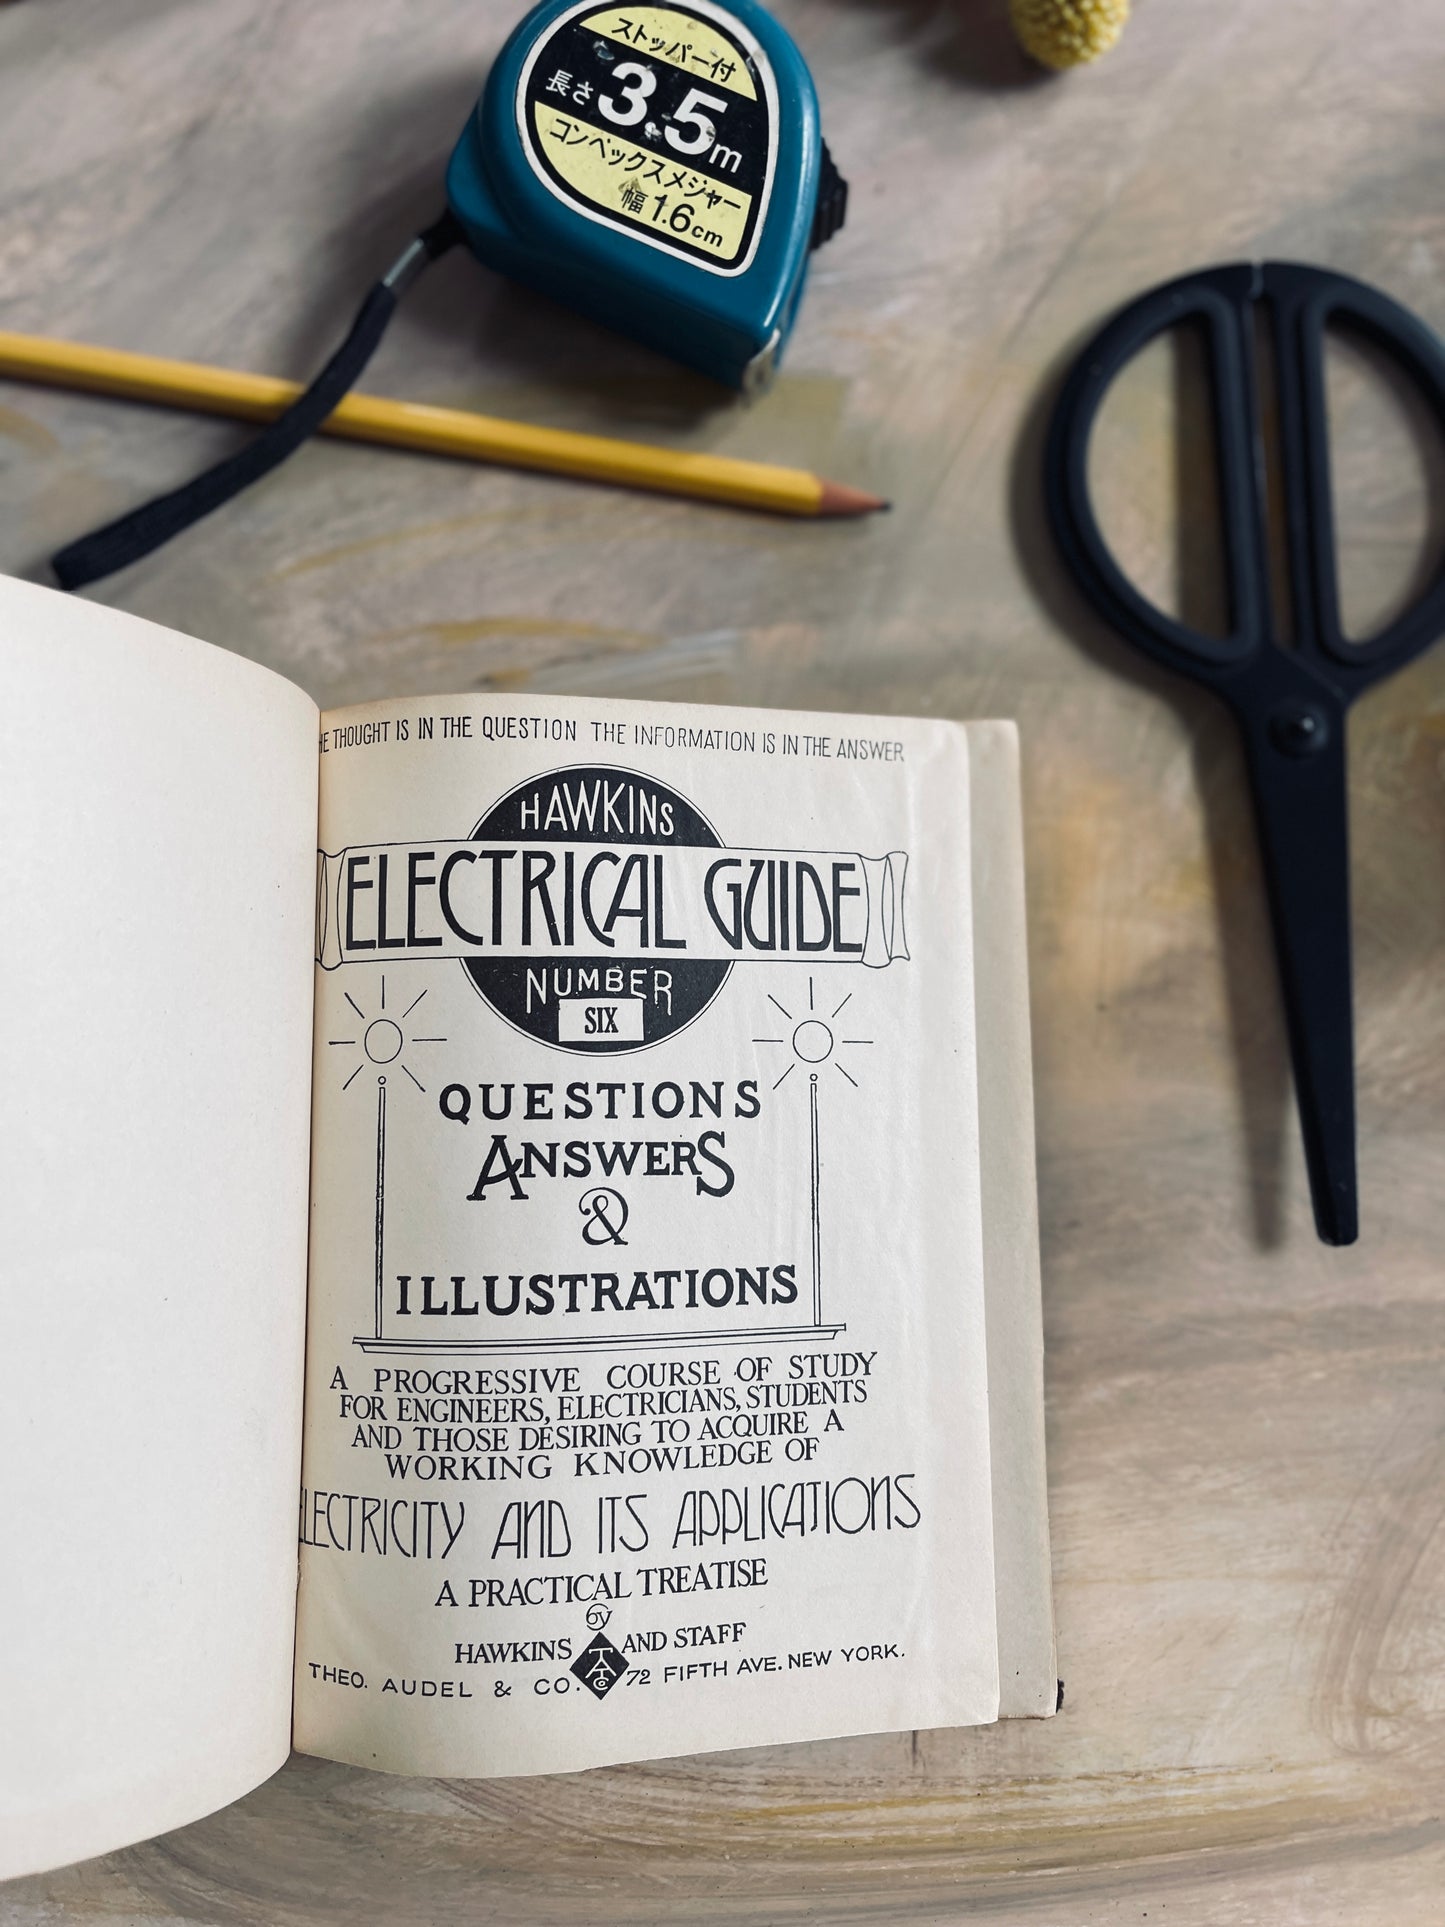 ストッパー付
長さ3.5m
コンベックスメジャー
幅1.6cm
THOUGHT IS IN THE QUESTION THE INFORMATION IS IN THE ANSWER
HAWKINS
ELECTRICAL GUIDE
NUMBER
SIX
QUESTIONS
ANSWERS
&
ILLUSTRATIONS
A PROGRESSIVE COURSE OF STUDY
FOR ENGINEERS, ELECTRICIANS, STUDENTS
AND THOSE DESIRING TO ACQUIRE A
WORKING KNOWLEDGE OF
ELECTRICITY AND ITS APPLICATIONS
A PRACTICAL TREATISE
by
HAWKINS AND STAFF
THEO. AUDEL & CO. 72 FIFTH AVE. NEW YORK.